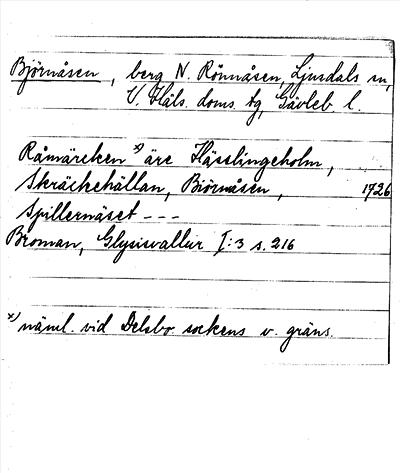 Björnåsen, berg N. Rönnåsen, Ljusdals sn,
V. Häls. doms. tg, Gävleb l.
Råmärcken x) äre Hässlingeholm,
Skräckehällan, Biörnåsen, 1726
Spillernäset - - -
Broman, Glysisvallur I:3 s. 216
x) näml. vid Delsbo sockens v. gräns.